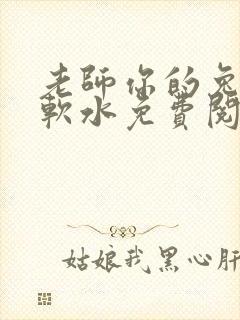 老師你的兔
軟水免費閱
姑娘我黑心肝